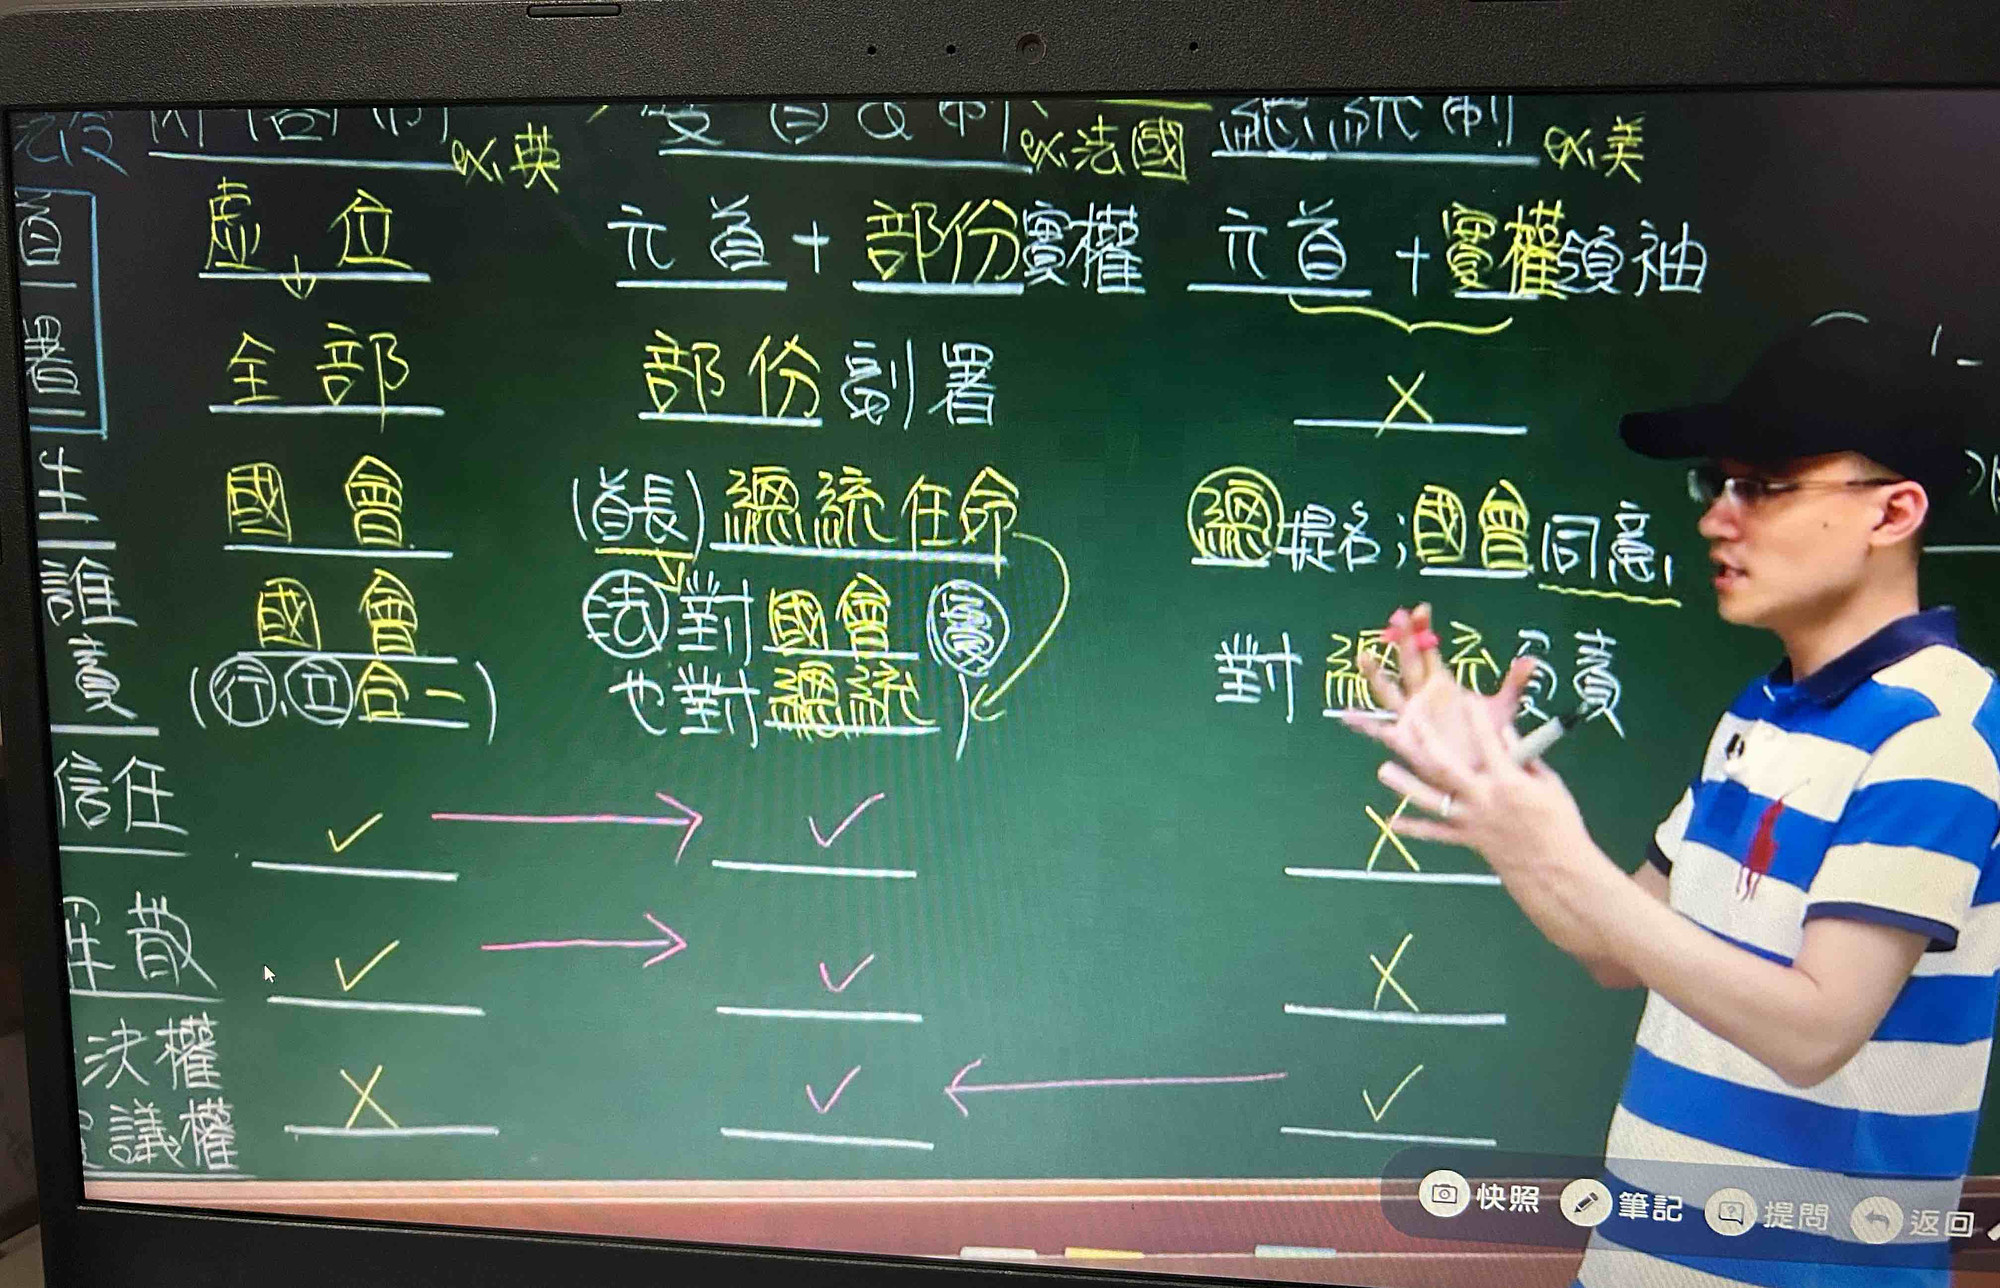 內閣制 ex.英 雙首長制 ex.法國 總統制 ex.美
首 虛位 元首+部份實權 元首+實權領袖
署 全部 部份副署 X
生 國會 (首長)總統任命 總提名;國會同意
誰 國會 法對國會
責 (行.立合一) 也對總統 對總統負責
信任 ✓ → ✓ X
解散 ✓ → ✓ X
決權 X ✓ ← ✓
議權
快照 筆記 提問 返回